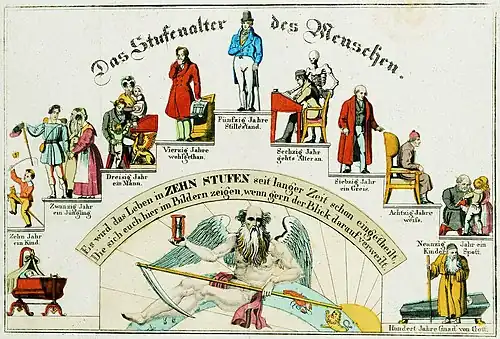 Das Stufenalter des Menschen.
Zehn Jahr
ein Kind.
Zwanzig Jahr
ein Jüngling.
Dreisig Jahr
ein Mann.
Vierzig Jahre
wohlgethan.
Fünfzig Jahre
Stillestand.
Sechzig Jahr
gehts Alter an.
Siebzig Jahr
ein Greis.
Achtzig Jahre
weiss.
Neunzig Jahr ein
Kinder Spott.
Hundert Jahre Gnad von Gott.
Es wird das Leben in ZEHN STUFEN seit langer Zeit schon eingetheilt,
Die sich auch hier im Bildern zeigen, wenn gern der Blick darauf verweilt.